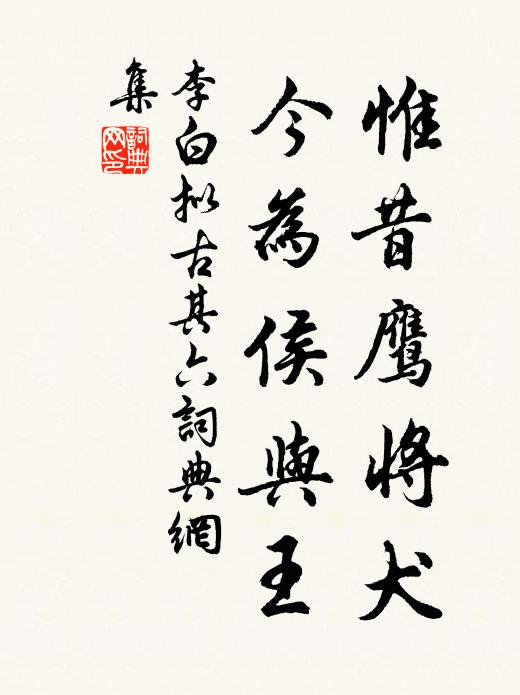 惟昔鹰將犬
今為侯與王
李白拟古其六詞典網
集
詞典网印